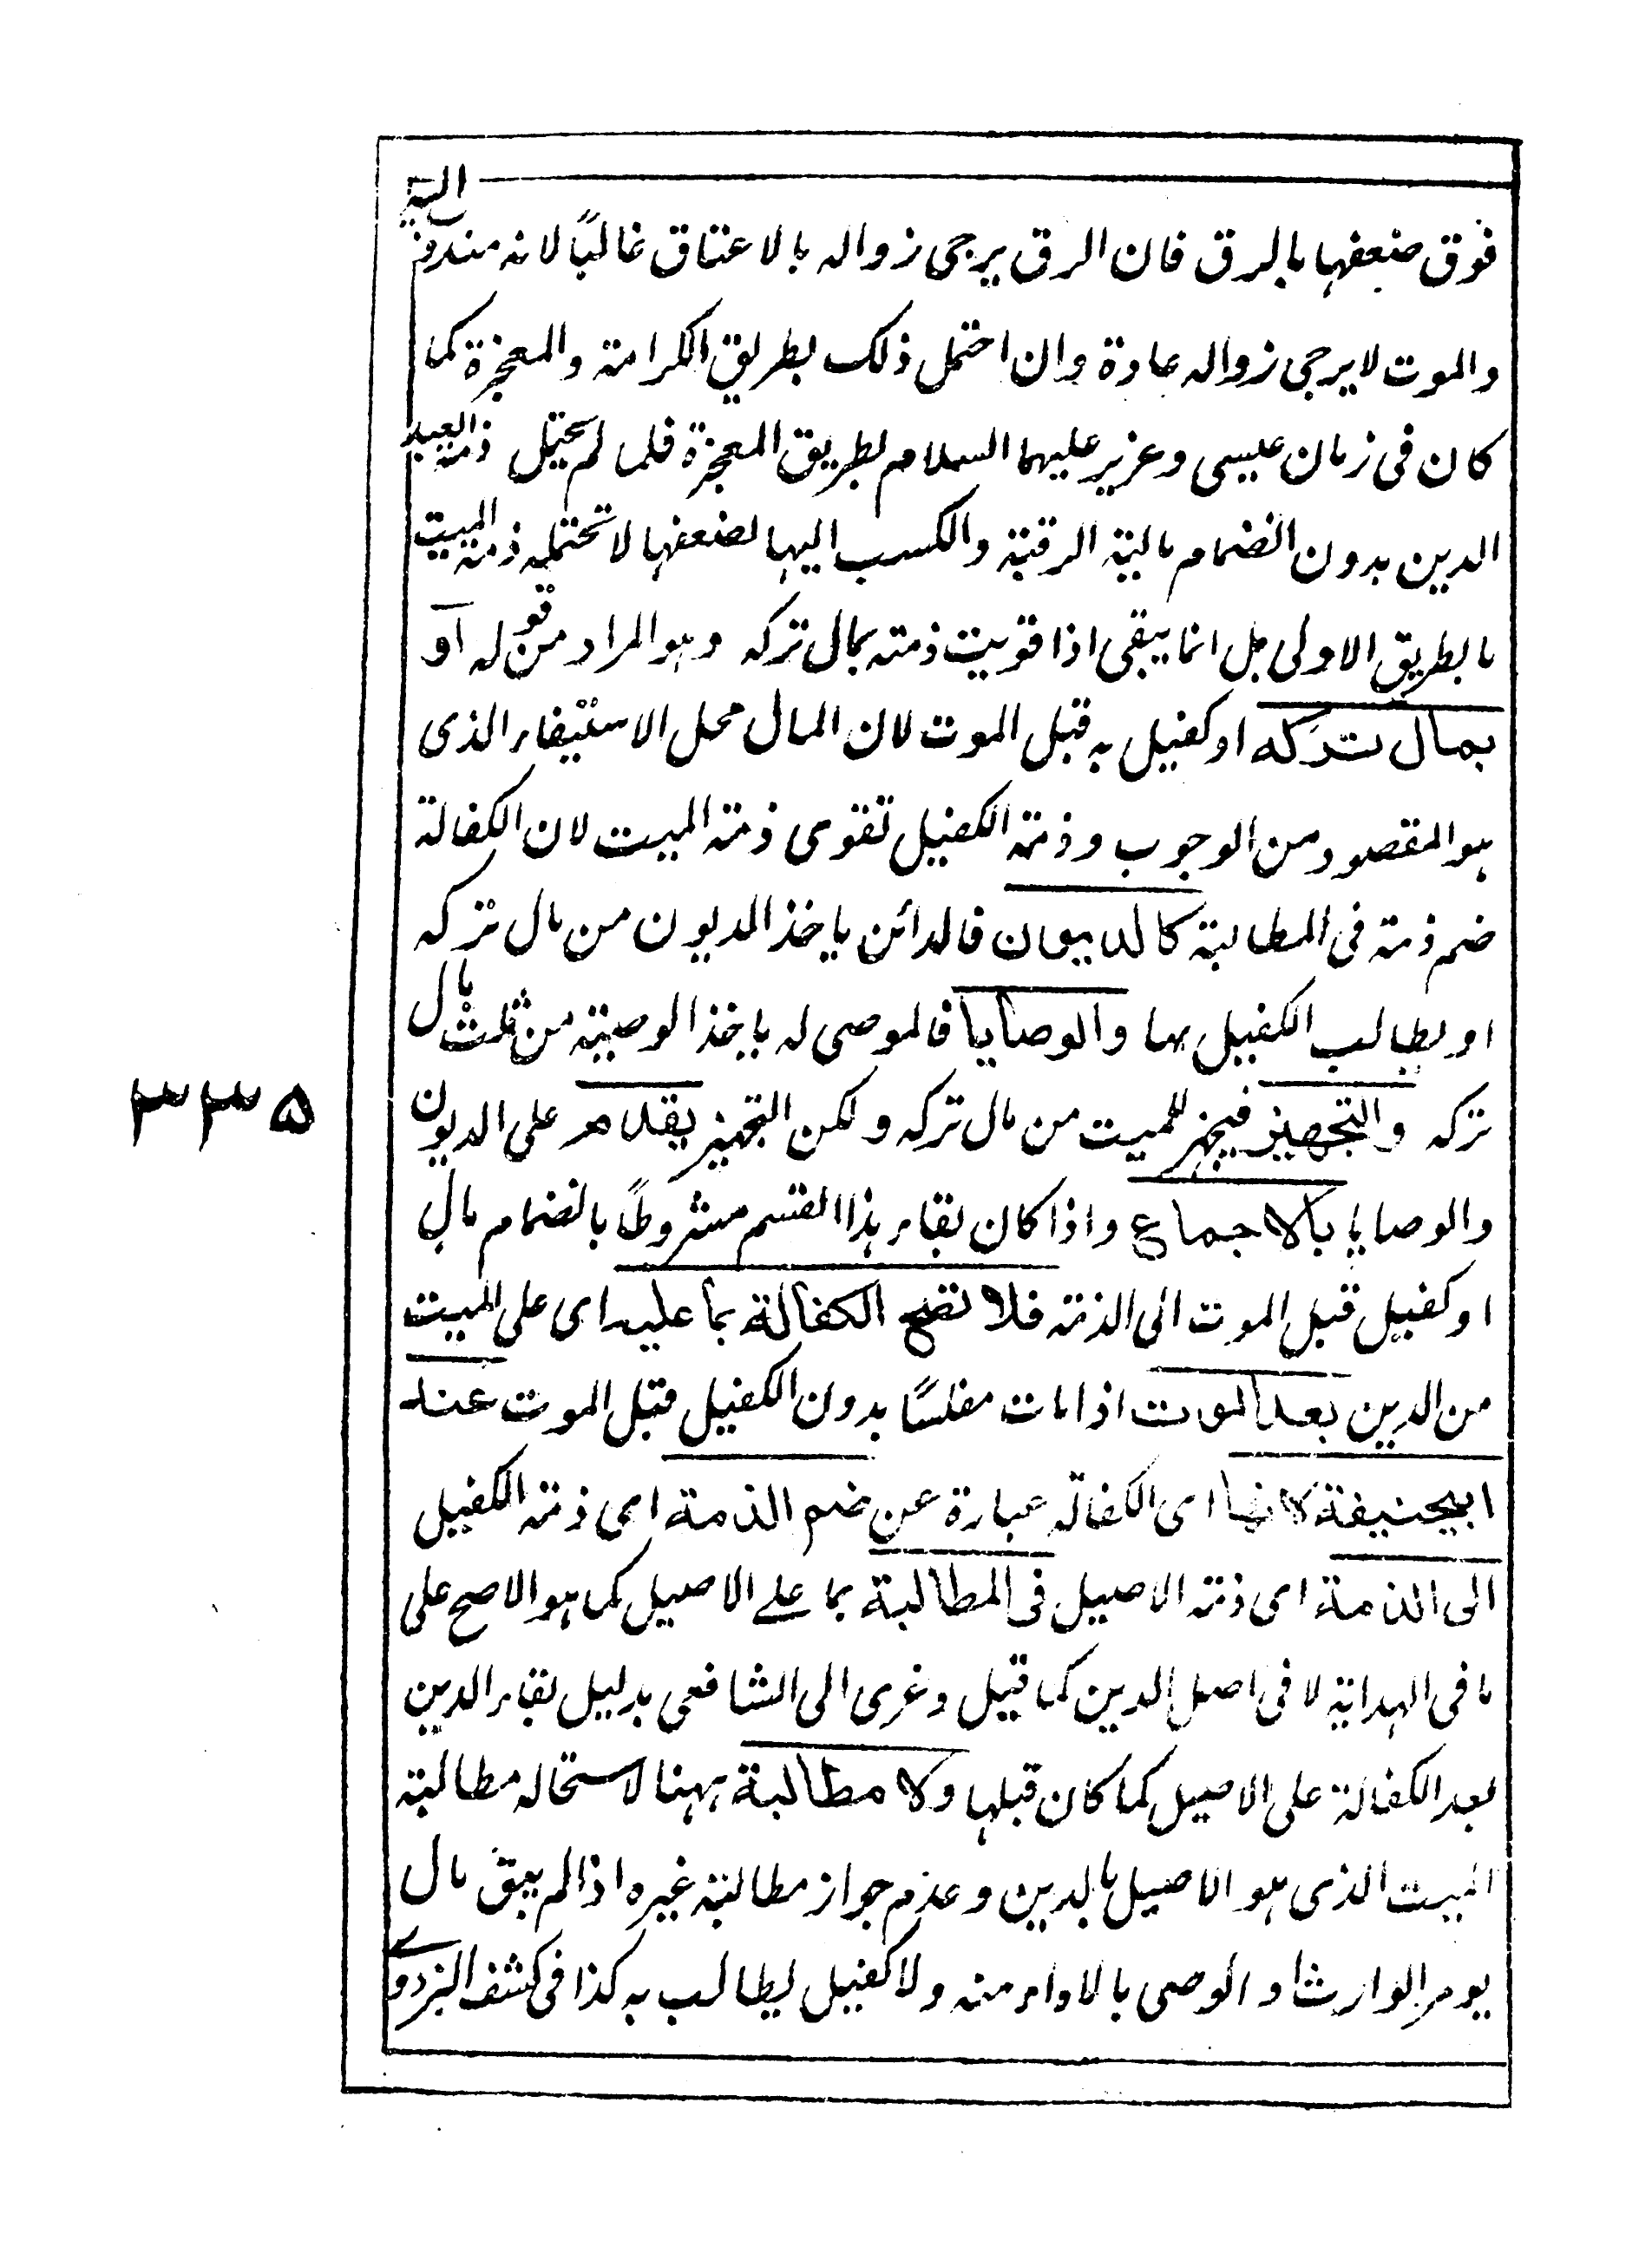 فوق ضعفها بالرق فان الرق يرجى زواله بالاعتاق غالبًا لانه مندوب اليه
والموت لا يرجى زواله عادة وان احتمل ذلك بطريق الكرامة والمعجزة كما
كان فى زمان عيسى وعزير عليهما السلام بطريق المعجزة فلما لم يحتمل ذمة العبد
الدين بدون انضمام مالية الرقبة والكسب اليها لضعفها لا تحتمله ذمة الميت
بالطريق الاولى بل انما يبقى اذا قويت ذمته بمال تركه وهو المراد من قوله او
بمال تركه او كفيل به قبل الموت لان المال محل الاستيفاء الذى
هو المقصود من الوجوب وذمة الكفيل تقوى ذمة الميت لان الكفالة
ضم ذمة فى المطالبة كالديون فالدائن ياخذ الديون من مال تركه
او يطالب الكفيل بها والوصايا فالموصى له ياخذ الوصية من ثلث مال
تركه والتجهيز فيجهز للميت من مال تركه ولكن التجهيز يقدم على الديون
والوصايا بالاجماع واذا كان بقاء هذا القسم مشروطًا بانضمام مال
او كفيل قبل الموت الى الذمة فلا تصح الكفالة بما عليه اى على الميت
من الدين بعد الموت اذا مات مفلسًا بدون الكفيل قبل الموت عند
ابيحنيفة لانها اى الكفالة عبارة عن ضم الذمة اى ذمة الكفيل
الى الذمة اى ذمة الاصيل فى المطالبة بما على الاصيل كما هو الاصح على
ما فى الهداية لا فى اصل الدين كما قيل وعزى الى الشافعى بدليل بقاء الدين
بعد الكفالة على الاصيل كما كان قبلها ولا مطالبة ههنا لاستحالة مطالبة
الميت الذى هو الاصيل بالدين وعدم جواز مطالبة غيره اذا لم يبق مال
يومر الوارث او الوصى بالاداء منه ولا كفيل ليطالب به كذا فى كشف البزدوى
٣٣٥